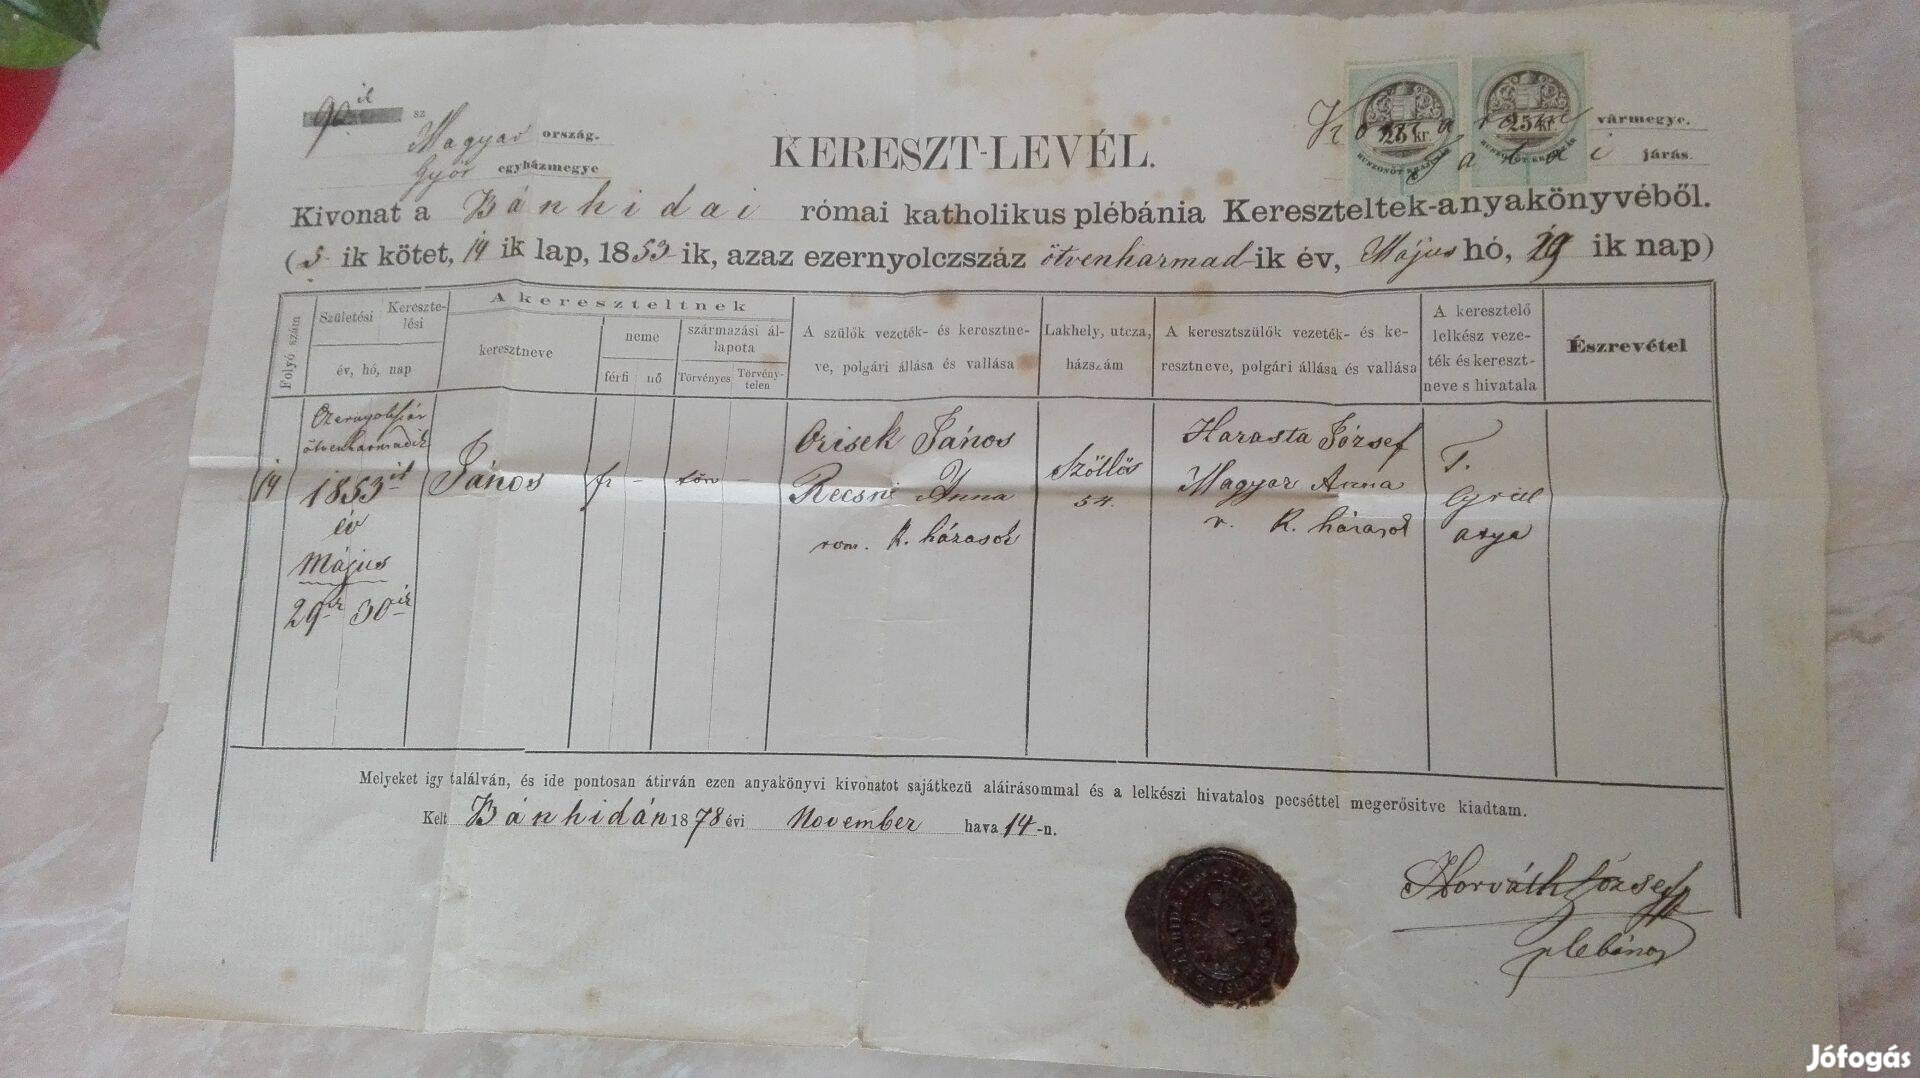 90 il sz
Magyar ország.
Győr egyházmegye
KERESZT-LEVÉL.
Komárom vármegye.
járás.
25 kr.
HUSZONÖT KRAJCZÁR
25 kr.
HUSZONÖT KRAJCZÁR
Kivonat a Bánhidai római katholikus plébánia Kereszteltek-anyakönyvéből.
(5 ik kötet, 14 ik lap, 1853 ik, azaz ezernyolczszáz ötvenharmad-ik év, Május hó, 29 ik nap)
Folyó szám
Születési
Keresztelési
év, hó, nap
A kereszteltnek
keresztneve
neme
férfi
nő
származási állapota
Törvényes
Törvénytelen
A szülők vezeték- és keresztneve, polgári állása és vallása
Lakhely, utcza, házszám
A keresztszülők vezeték- és keresztneve, polgári állása és vallása
A keresztelő lelkész vezeték és keresztneve s hivatala
Észrevétel
14
ötvenharmadik
1853 ik
év
Május
29 ik 30 ik
János
fi -
törv -
Orisek János
Recsni Anna
rom. K. házasok
Szőllős
54.
Harasta József
Magyar Anna
r. K. házasok
T.
Cyrill
atya
Melyeket igy találván, és ide pontosan átirván ezen anyakönyvi kivonatot sajátkezü aláirásommal és a lelkészi hivatalos pecséttel megerősitve kiadtam.
Kelt Bánhidán 1878 évi November hava 14-n.
Horváth József
plébános
Jófogás